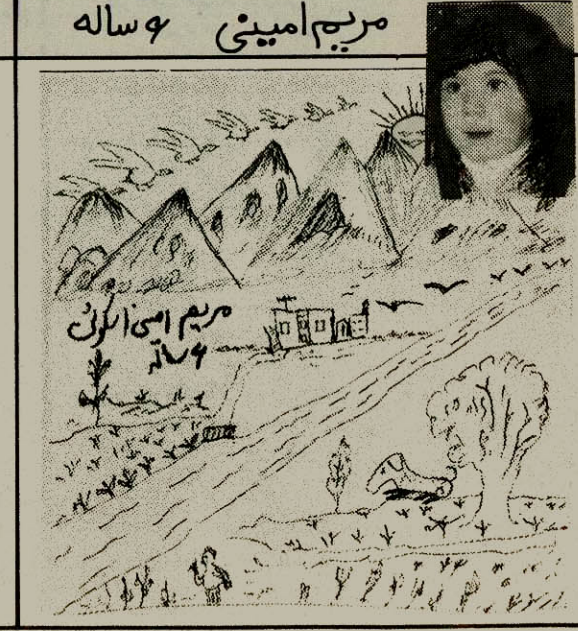 مریم امینی ۶ ساله
مریم امینی
۶ ساله